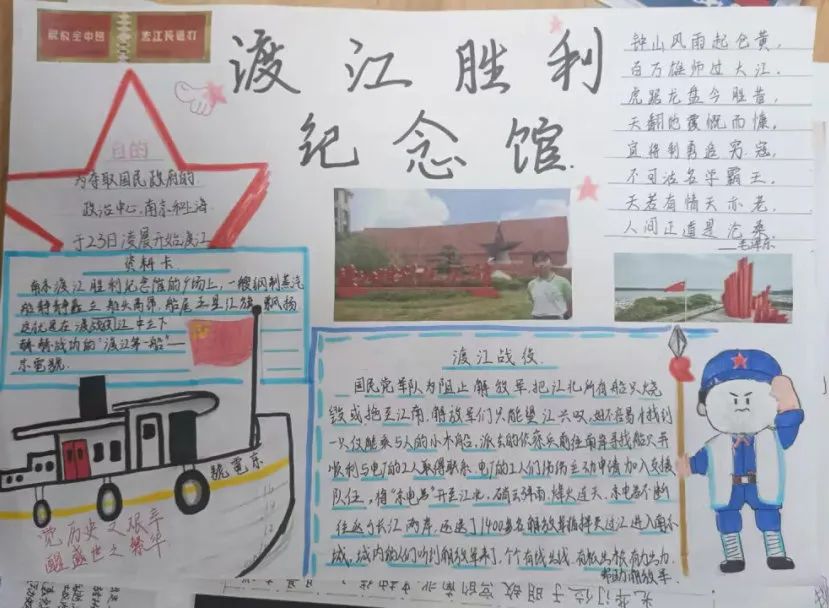 解放全中国
渡江胜利
纪念馆
钟山风雨起仓黄,
百万雄师过大江.
虎踞龙盘今胜昔,
天翻地覆慨而慷,
宜将剩勇追穷寇,
不可沽名学霸王,
天若有情天亦老,
人间正道是沧桑
——毛泽东
目的
为夺取国民政府的
政治中心,南京和上海
于23日凌晨开始渡江
资料卡
渡江胜利纪念馆的广场上,一艘钢制蒸汽
船静静矗立 船头高昂,船尾
渡江
战功的"渡江第一船"——
京电号.
渡江战役.
国民党军队为阻止解放军,把江北所有船只烧
毁或拖至江南,解放军们只能望江兴叹,好不容易才找到
一只仅能乘5人的小木船,派出的侦察兵前往南岸寻找船只并
顺利与电厂的工人取得联系,电厂的工人们纷纷主动申请加入支援
队伍,将"京电号"开至江北,硝云弹雨,烽火连天,京电号不断
往返于长江两岸,运送了1400多名解放军指挥员过江进入南京
城,城内的人们听到解放军来了,个个有钱出钱,有力出力.
帮助解放军.
號電京
党历史之艰辛
醒盛世之繁华